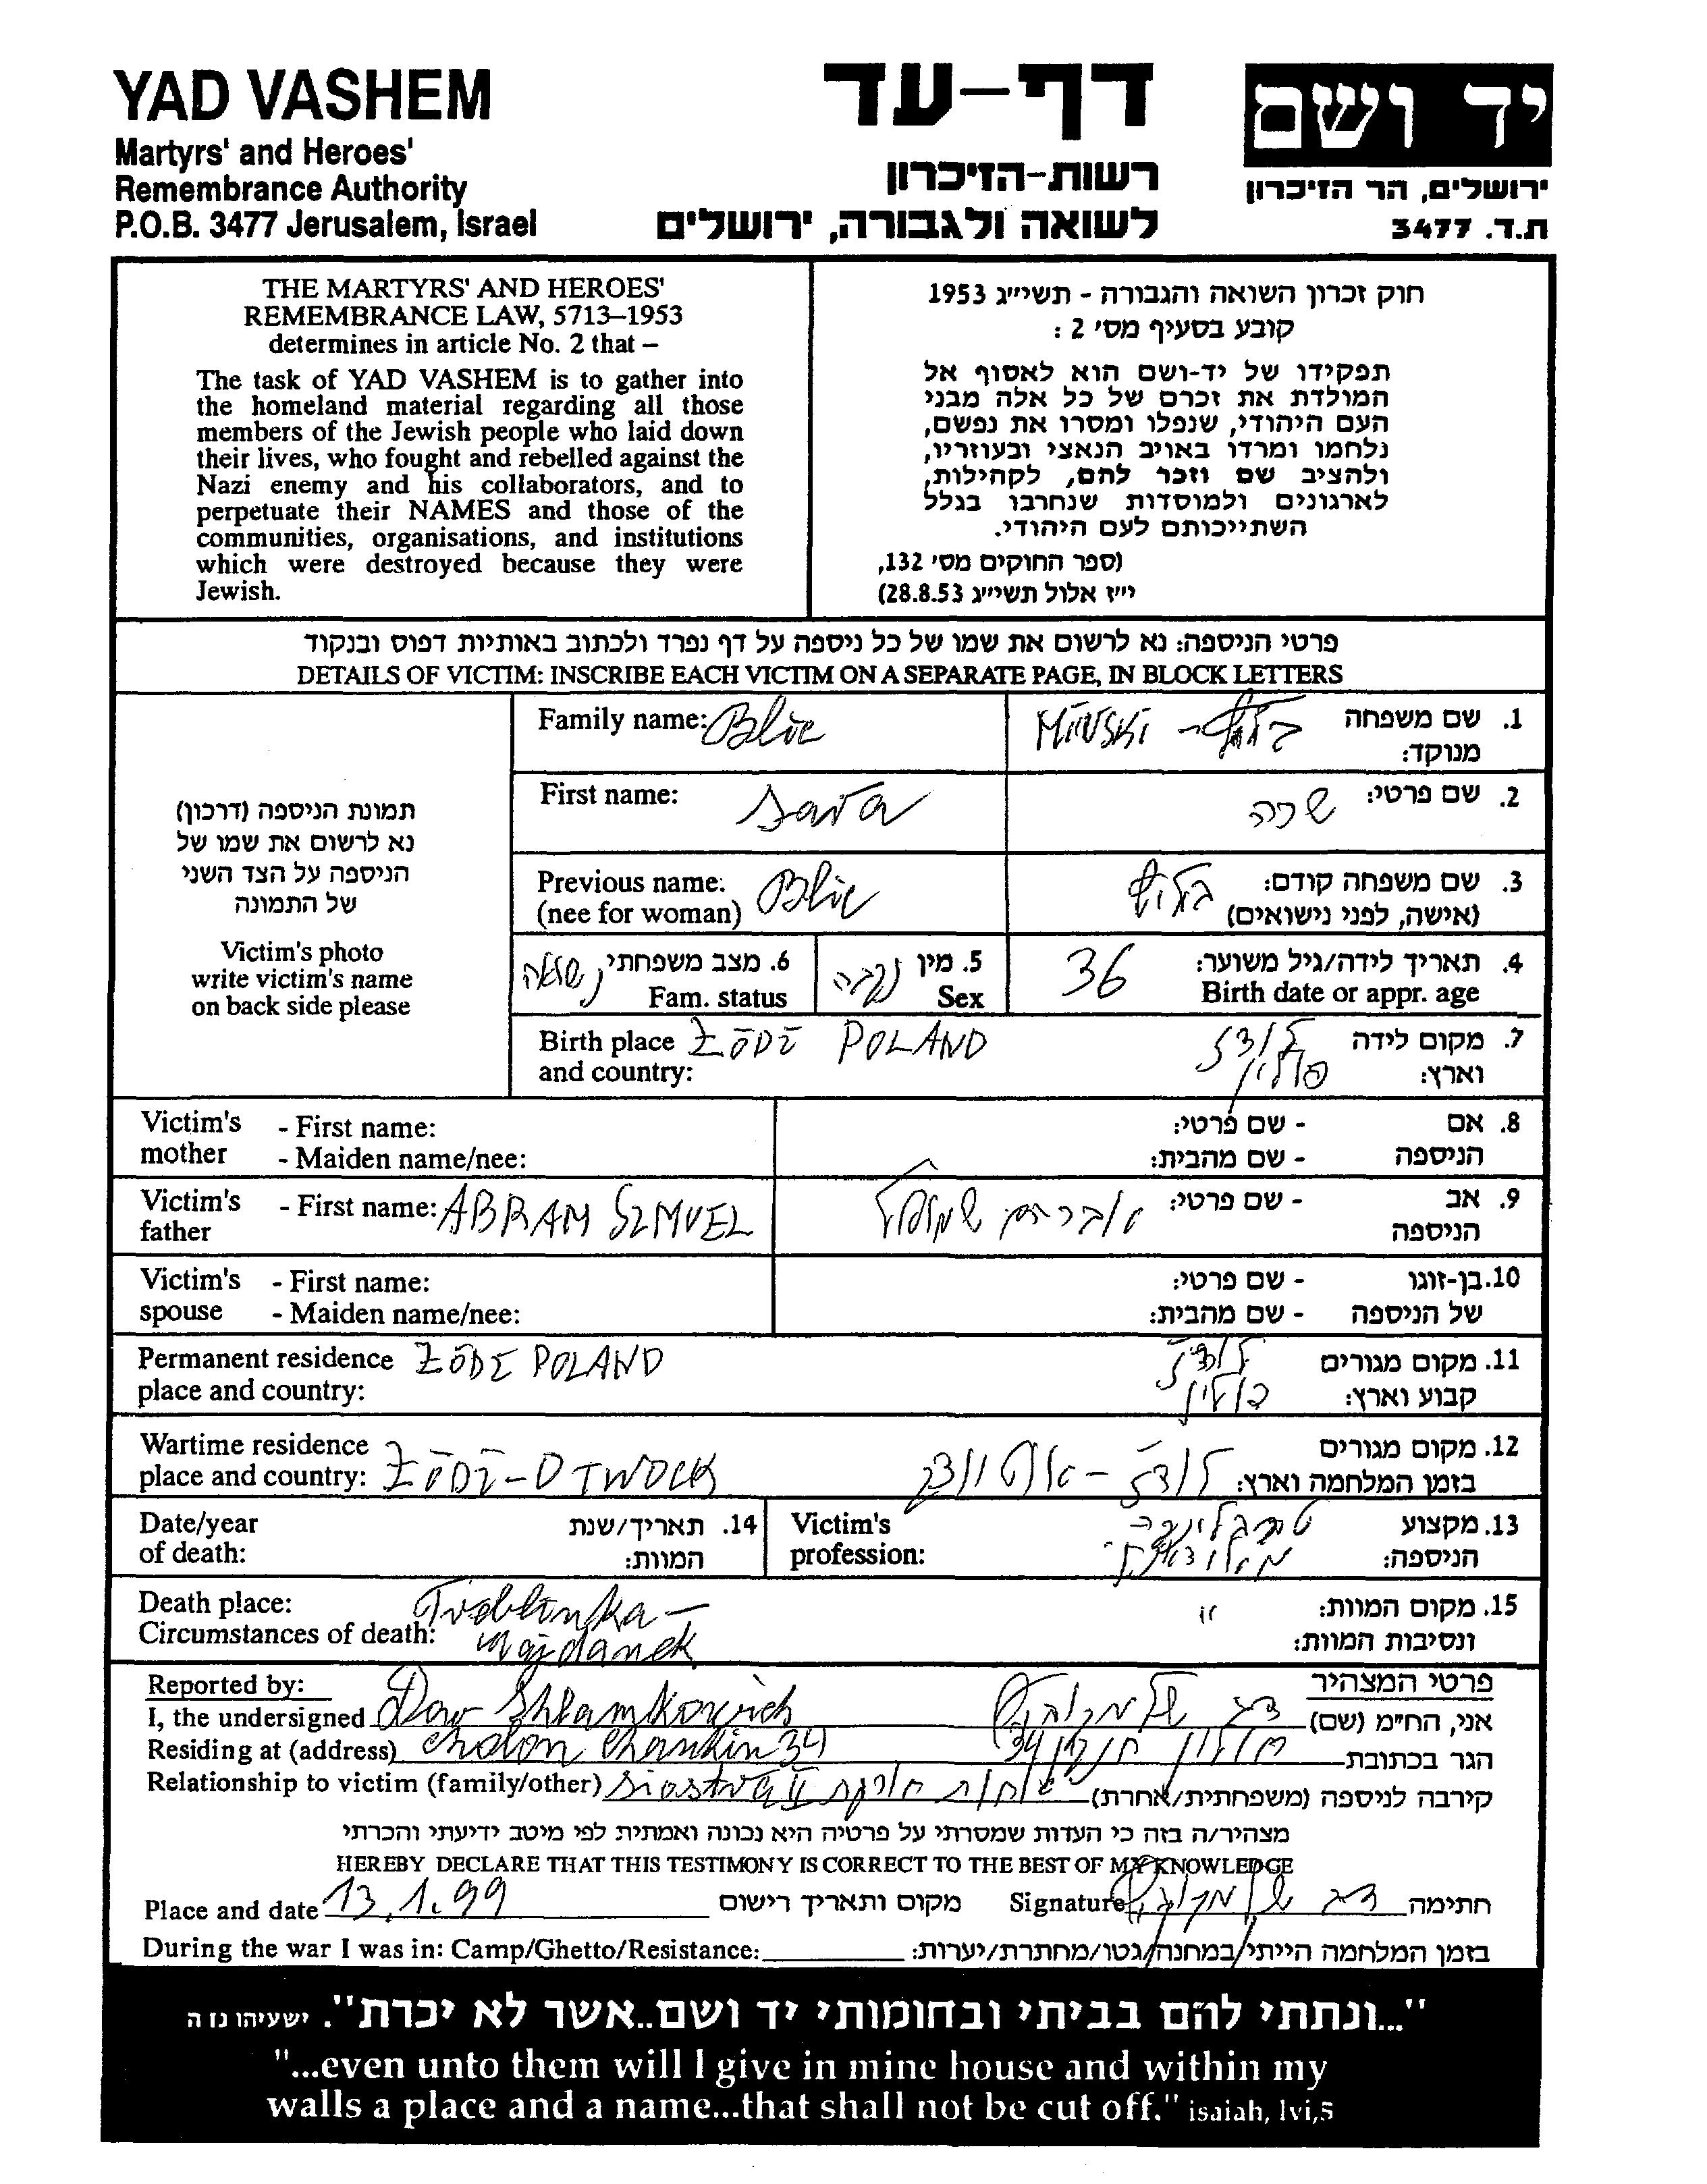 YAD VASHEM
Martyrs' and Heroes'
Remembrance Authority
P.O.B. 3477 Jerusalem, Israel
דף-עד
רשות-הזיכרון
לשואה ולגבורה, ירושלים
יד ושם
ירושלים, הר הזיכרון
ת.ד. 3477
THE MARTYRS' AND HEROES'
REMEMBRANCE LAW, 5713–1953
determines in article No. 2 that –
The task of YAD VASHEM is to gather into
the homeland material regarding all those
members of the Jewish people who laid down
their lives, who fought and rebelled against the
Nazi enemy and his collaborators, and to
perpetuate their NAMES and those of the
communities, organisations, and institutions
which were destroyed because they were
Jewish.
חוק זכרון השואה והגבורה - תשי״ג 1953
קובע בסעיף מס׳ 2 :
תפקידו של יד-ושם הוא לאסוף אל
המולדת את זכרם של כל אלה מבני
העם היהודי, שנפלו ומסרו את נפשם,
נלחמו ומרדו באויב הנאצי ובעוזריו,
ולהציב שם וזכר להם, לקהילות,
לארגונים ולמוסדות שנחרבו בגלל
השתייכותם לעם היהודי.
(ספר החוקים מס׳ 132,
י״ז אלול תשי״ג 28.8.53)
פרטי הניספה: נא לרשום את שמו של כל ניספה על דף נפרד ולכתוב באותיות דפוס ובנקוד
DETAILS OF VICTIM: INSCRIBE EACH VICTIM ON A SEPARATE PAGE, IN BLOCK LETTERS
תמונת הניספה (דרכון)
נא לרשום את שמו של
הניספה על הצד השני
של התמונה
Victim's photo
write victim's name
on back side please
Family name: Blic
MINSKI - 1. שם משפחה
מנוקד:
First name: Sara
2. שם פרטי: שרה
Previous name: Blic
(nee for woman)
3. שם משפחה קודם:
(אישה, לפני נישואים)
6. מצב משפחתי נשואה
Fam. status
5. מין נקבה
Sex
4. תאריך לידה/גיל משוער: 36
Birth date or appr. age
Birth place ŁODZ POLAND
and country:
7. מקום לידה לודז
וארץ: פולין
Victim's - First name:
mother - Maiden name/nee:
8. אם - שם פרטי:
הניספה - שם מהבית:
Victim's - First name: ABRAM SZMUEL
father
9. אב - שם פרטי: אברהם שמואל
הניספה
Victim's - First name:
spouse - Maiden name/nee:
10. בן-זוגו - שם פרטי:
של הניספה - שם מהבית:
Permanent residence ŁODZ POLAND
place and country:
11. מקום מגורים לודז
קבוע וארץ: פולין
Wartime residence
place and country: ŁODZ - OTWOCK
12. מקום מגורים
בזמן המלחמה וארץ: לודז - אוטווצק
Date/year
of death:
14. תאריך/שנת
המוות:
Victim's
profession:
13. מקצוע
הניספה:
Death place: Treblinka -
Circumstances of death: Majdanek
15. מקום המוות:
ונסיבות המוות:
Reported by:
I, the undersigned Dow Shlamkowich
Residing at (address) Cholon Chankin 34
Relationship to victim (family/other)
פרטי המצהיר
אני, החי״מ (שם) דב שלמקוביץ
הגר בכתובת חולון חנקין 34
קירבה לניספה (משפחתית/אחרת)
מצהיר/ה בזה כי העדות שמסרתי על פרטיה היא נכונה ואמתית לפי מיטב ידיעתי והכרתי
HEREBY DECLARE THAT THIS TESTIMONY IS CORRECT TO THE BEST OF MY KNOWLEDGE
Place and date 13.1.99 מקום ותאריך רישום
Signature דב שלמקוביץ חתימה
During the war I was in: Camp/Ghetto/Resistance:
בזמן המלחמה הייתי/במחנה/גטו/מחתרת/יערות:
"...ונתתי להם בביתי ובחומותי יד ושם..אשר לא יכרת". ישעיהו נו ה
"...even unto them will I give in mine house and within my
walls a place and a name...that shall not be cut off." isaiah, lvi,5